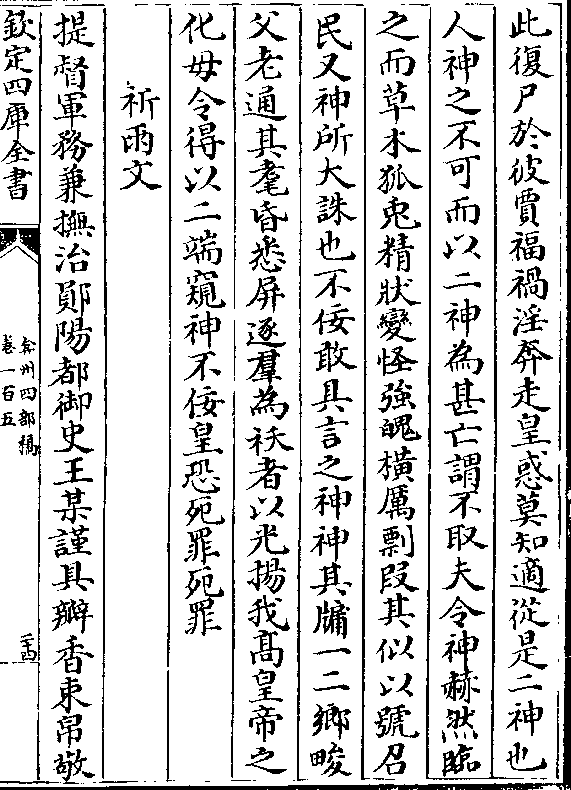 此復尸於彼賈福禍淫奔走皇惑莫知適從是二神也
人神之不可而以二神為甚亡謂不取夫令神赫然臨
之而草木狐兎精狀變怪強魄橫厲剽叚其似以號召
民又神所大誅也不佞敢具言之神神其牖一二鄉畯
父老通其耄昏悉屏逐羣為祅者以光揚我髙皇帝之
化毋令得以二端窺神不佞皇恐死罪死罪
祈雨文
提督軍務兼撫治鄖陽都御史王某謹具瓣香束帛敬
欽定四庫全書
弇州四部稿
卷一百五